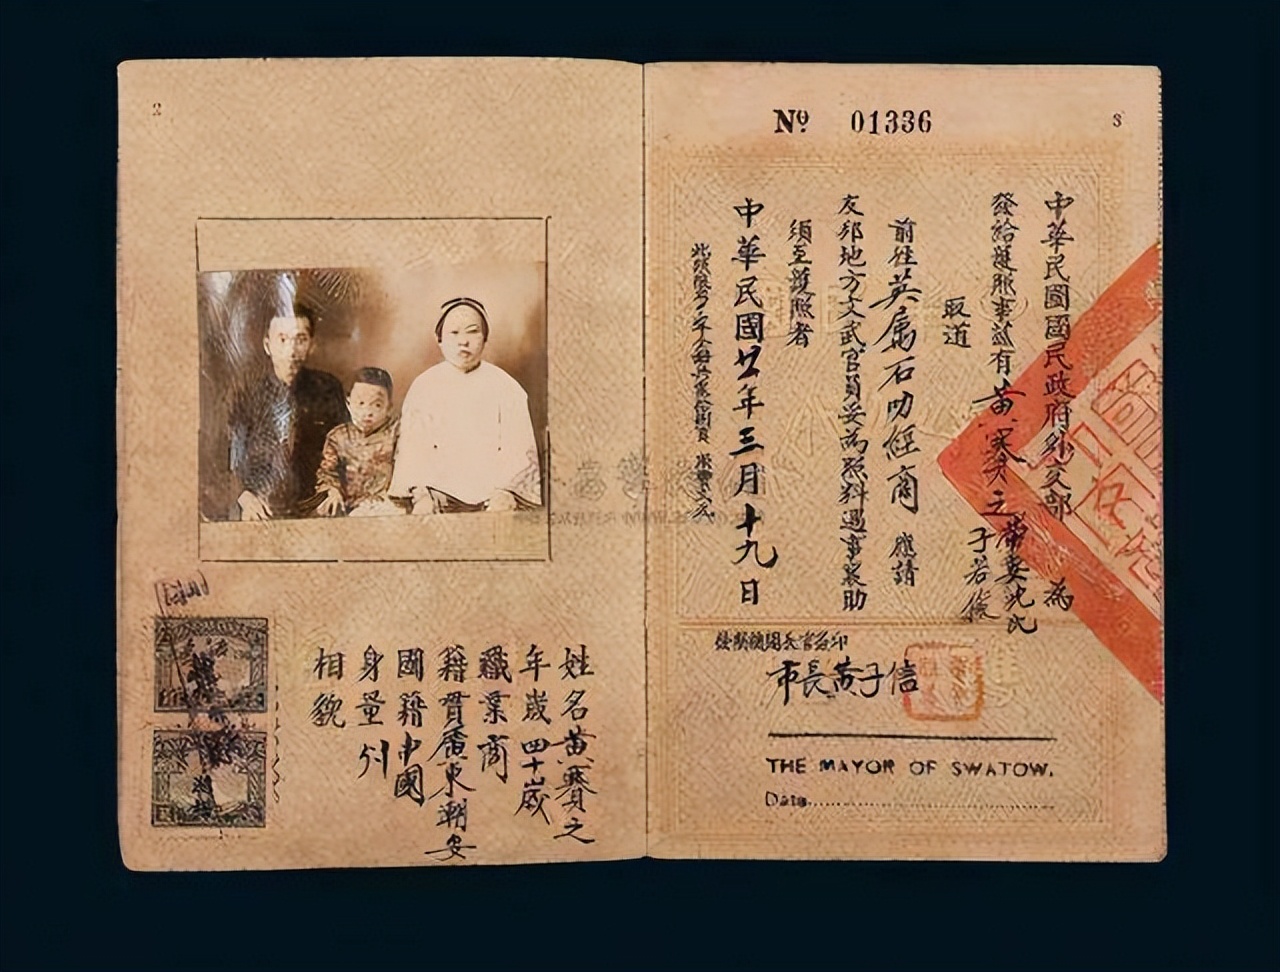 2
姓名黃賽之
年歲四十歲
職業商
籍貫廣東潮安
國籍中國
身量
相貌
№ 01336
3
中華民國國民政府外交部 為
發給護照事茲有黃賽之帶妻沈氏
子若俊
取道
前往英属石叻經商 應請
友邦地方文武官員妥為照料遇事襄助
須至護照者
中華民國廿年三月十九日
發照機關長官簽印
市長黃子信
THE MAYOR OF SWATOW.
Date